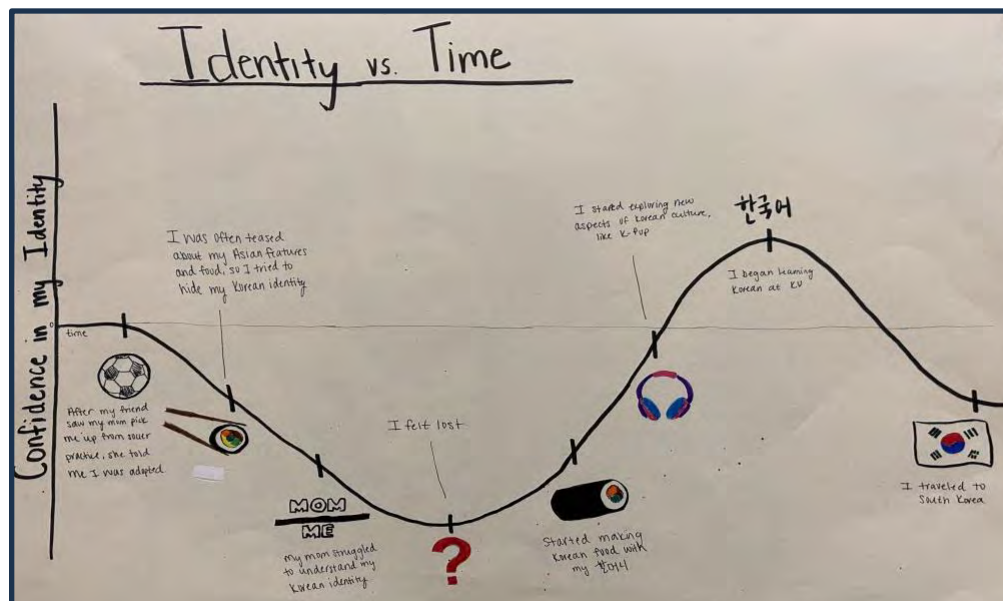 Identity vs. Time
Confidence in my Identity
time
After my friend
saw my mom pick
me up from soccer
practice, she told
me I was adopted
I was often teased
about my Asian features
and food, so I tried to
hide my Korean identity
MOM
ME
my mom struggled
to understand my
Korean identity
I felt lost
?
Started making
Korean food with
my 할머니
I started exploring new
aspects of Korean culture,
like K-Pop
한국어
I began learning
Korean at KU
I traveled to
South Korea